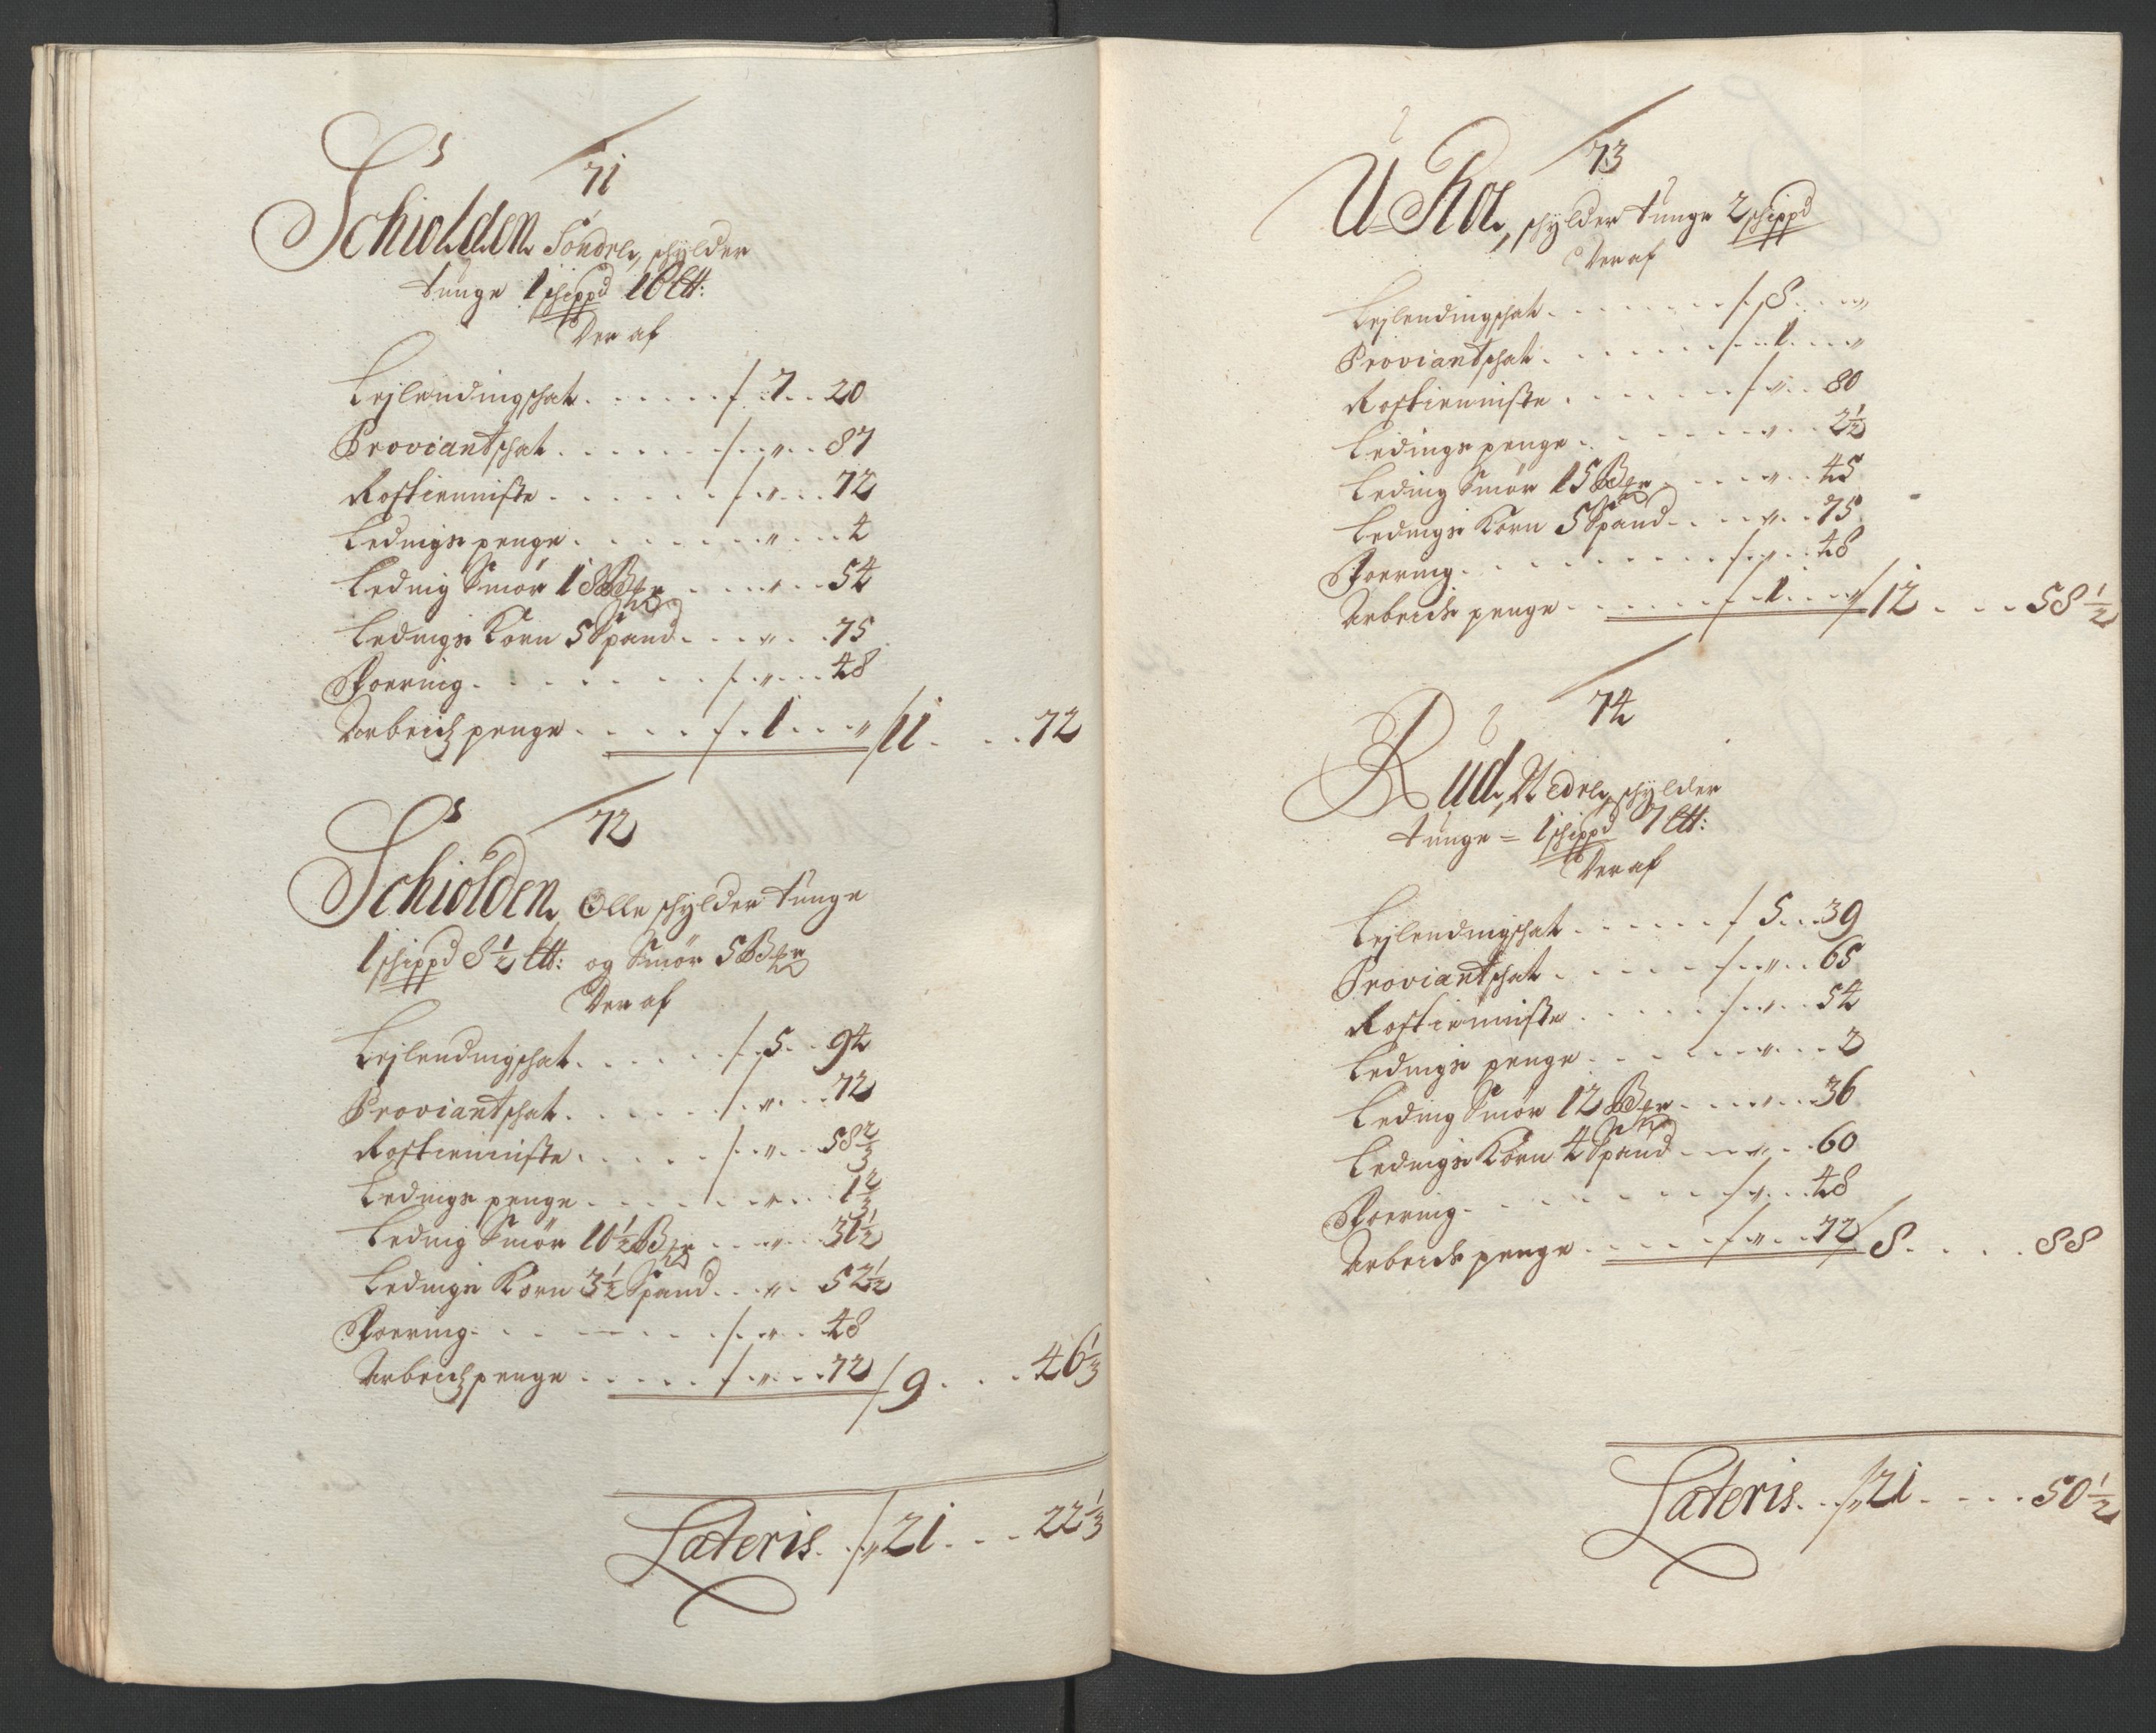 71
Schiolden Söndrl, schylder
tunge 1 schippd 10 ltt:
Der af
Lejlendingschat . . . . . . / . 7 . . 20
Proviantschat . . . . . . / . . " . . 87
Rostienniste . . . . . . . / . " . . . 72
Ledings penge . . . . . . . . " . . . 4
Leding Smör 18 Bpr . . . . " . . 54
Ledings Korn 5 Spand . . . " . . 75
Foering . . . . . . . . / . . " . . 48
Arbeidtz penge . . . . . / . 1 . . . " / 11 . . . . 72
72
Schiolden Olle schylder tunge
1 schippd 8 1/2 ltt: og Smör 5 Bpr
Der af
Lejlendingschat . . . . . . / . 5 . . 94
Proviantschat . . . . . . / . " . . . 72
Rostienniste . . . . . . / . . " . . 58 2/3
Ledings penge . . . . . . . . " . . . 1 2/3
Leding Smör 10 1/2 Bpr . . . " . . . 31 1/2
Ledings Korn 3 1/2 Spand . . . " . . 52 1/2
Foering . . . . . . . . / . . " . . 48
Arbeidtz penge . . . . . . / . " . . . 72 / 9 . . . . 46 1/3
Lateris . . / " 21 . . . 22 1/3
73
U Roe, schylder tunge 2 schippd
Der af
Lejlendingschat . . . . . . . . / . 8 . . . "
Proviantschat . . . . . . . / . . 1 . . . "
Rostienniste . . . . . . . / . " . . 80
Ledings penge . . . . . . . . " . . 2 1/2
Leding Smör 15 Bpr . . . . " . . 45
Ledings Korn 5 Spand . . . . " . . 75
Foering . . . . . . . . . / . . " . . 48
Arbeids penge . . . . . . / . 1 . . . " / 12 . . . . 58 1/2
74
Rud, Nedrl, schylder
tunge = 1 schippd 7 ltt:
Der af
Lejlendingschat . . . . . . / 5 . . . 39
Proviantschat . . . . . . / . . " . . 65
Rostienniste . . . . . . / . . " . . 54
Ledings penge . . . . . . . . " . . . 2
Leding Smör 12 Bpr . . . . " . . . 36
Ledings Korn 4 Spand . . . . " . . 60
Foering . . . . . . . . . / . " . . . 48
Arbeids penge . . . . . / . . " . . 72 / 8 . . . . . 88
Lateris . . / " 21 . . . . . 50 1/2